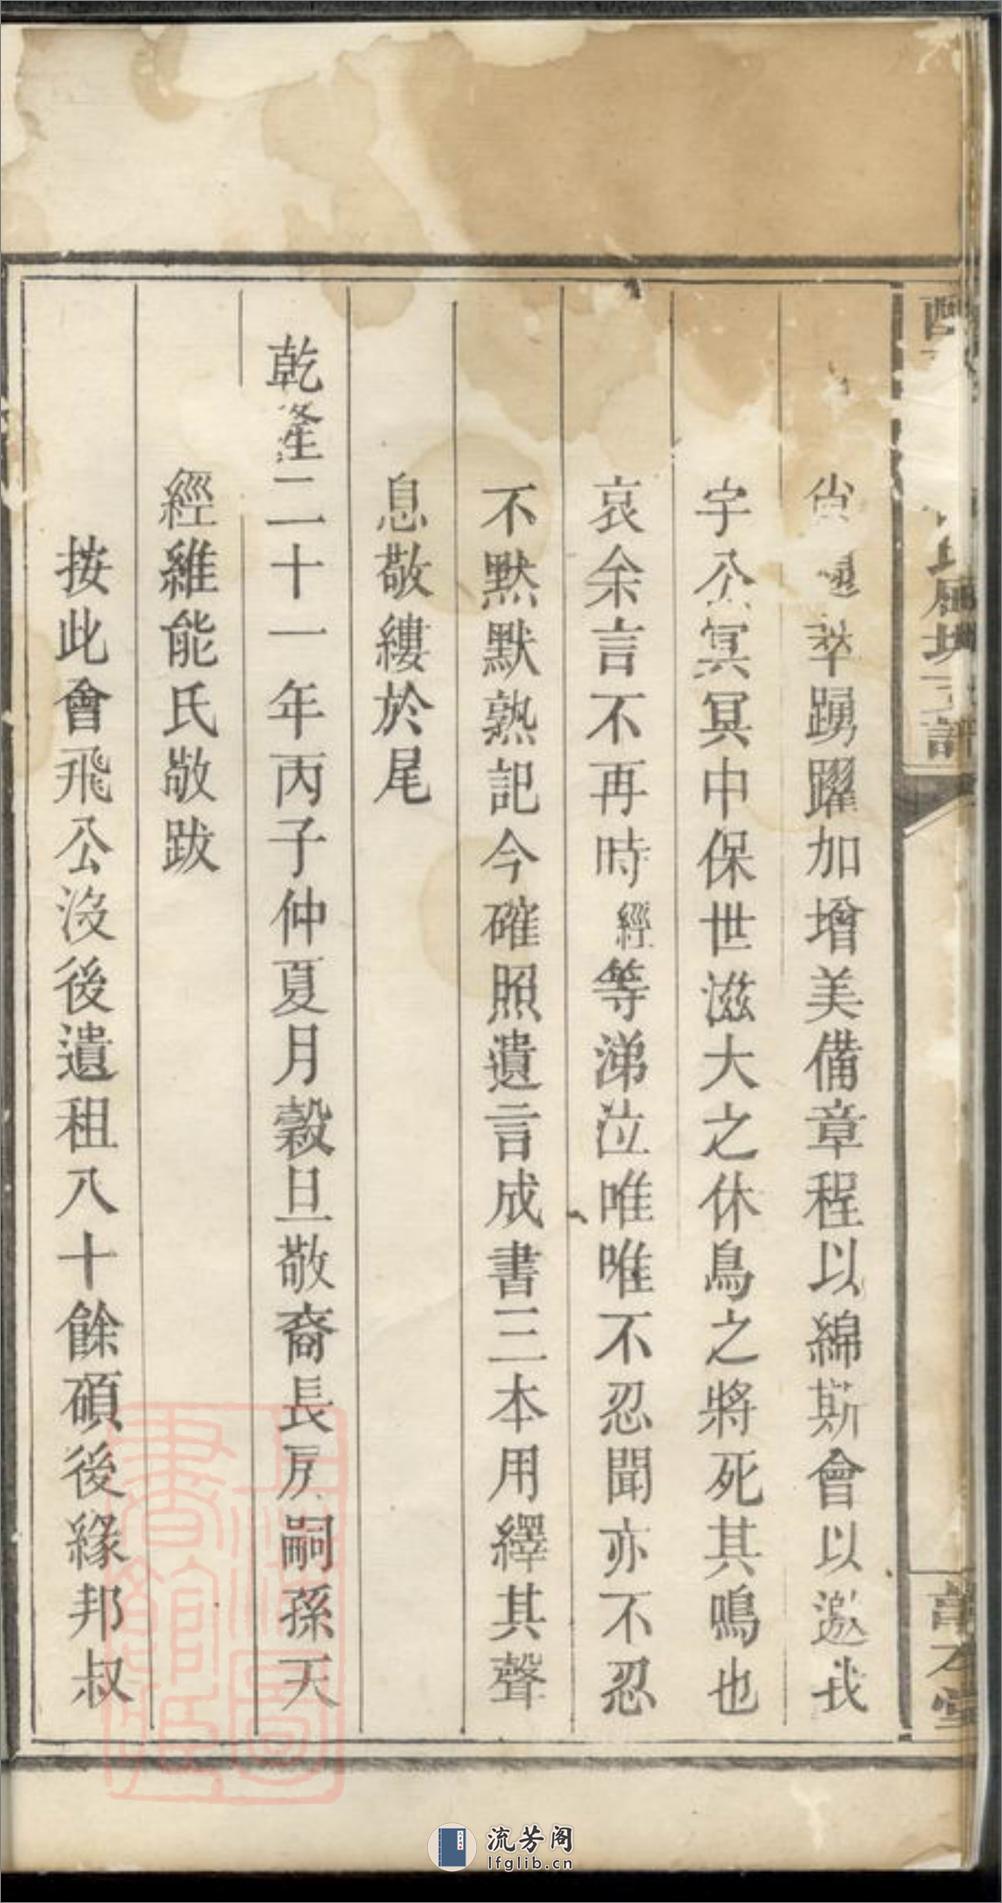 踴躍加增美備章程以綿斯會以邀我
宇公冥冥中保世滋大之休鳥之將死其鳴也
哀余言不再時經等涕泣唯唯不忍聞亦不忍
不默默熟記今確照遺言成書三本用繹其聲
息敬縷於尾
乾隆二十一年丙子仲夏月穀旦敬裔長房嗣孫天
經維能氏敬跋
按此會飛公沒後遺租八十餘碩後緣邦叔
上海圖書館藏
流芳阁
lfglib.cn